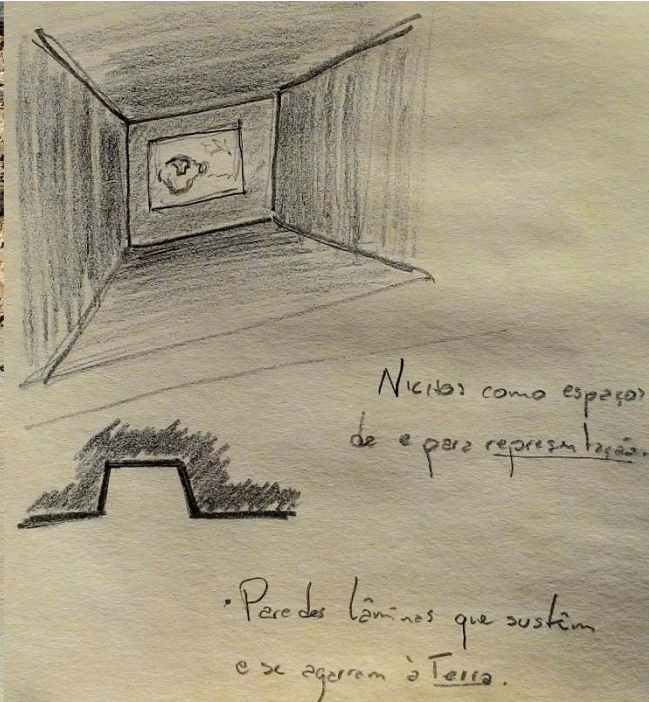 Nichos como espaços
de e para representação.
· Paredes lâminas que sustêm
e se agarram à Terra.